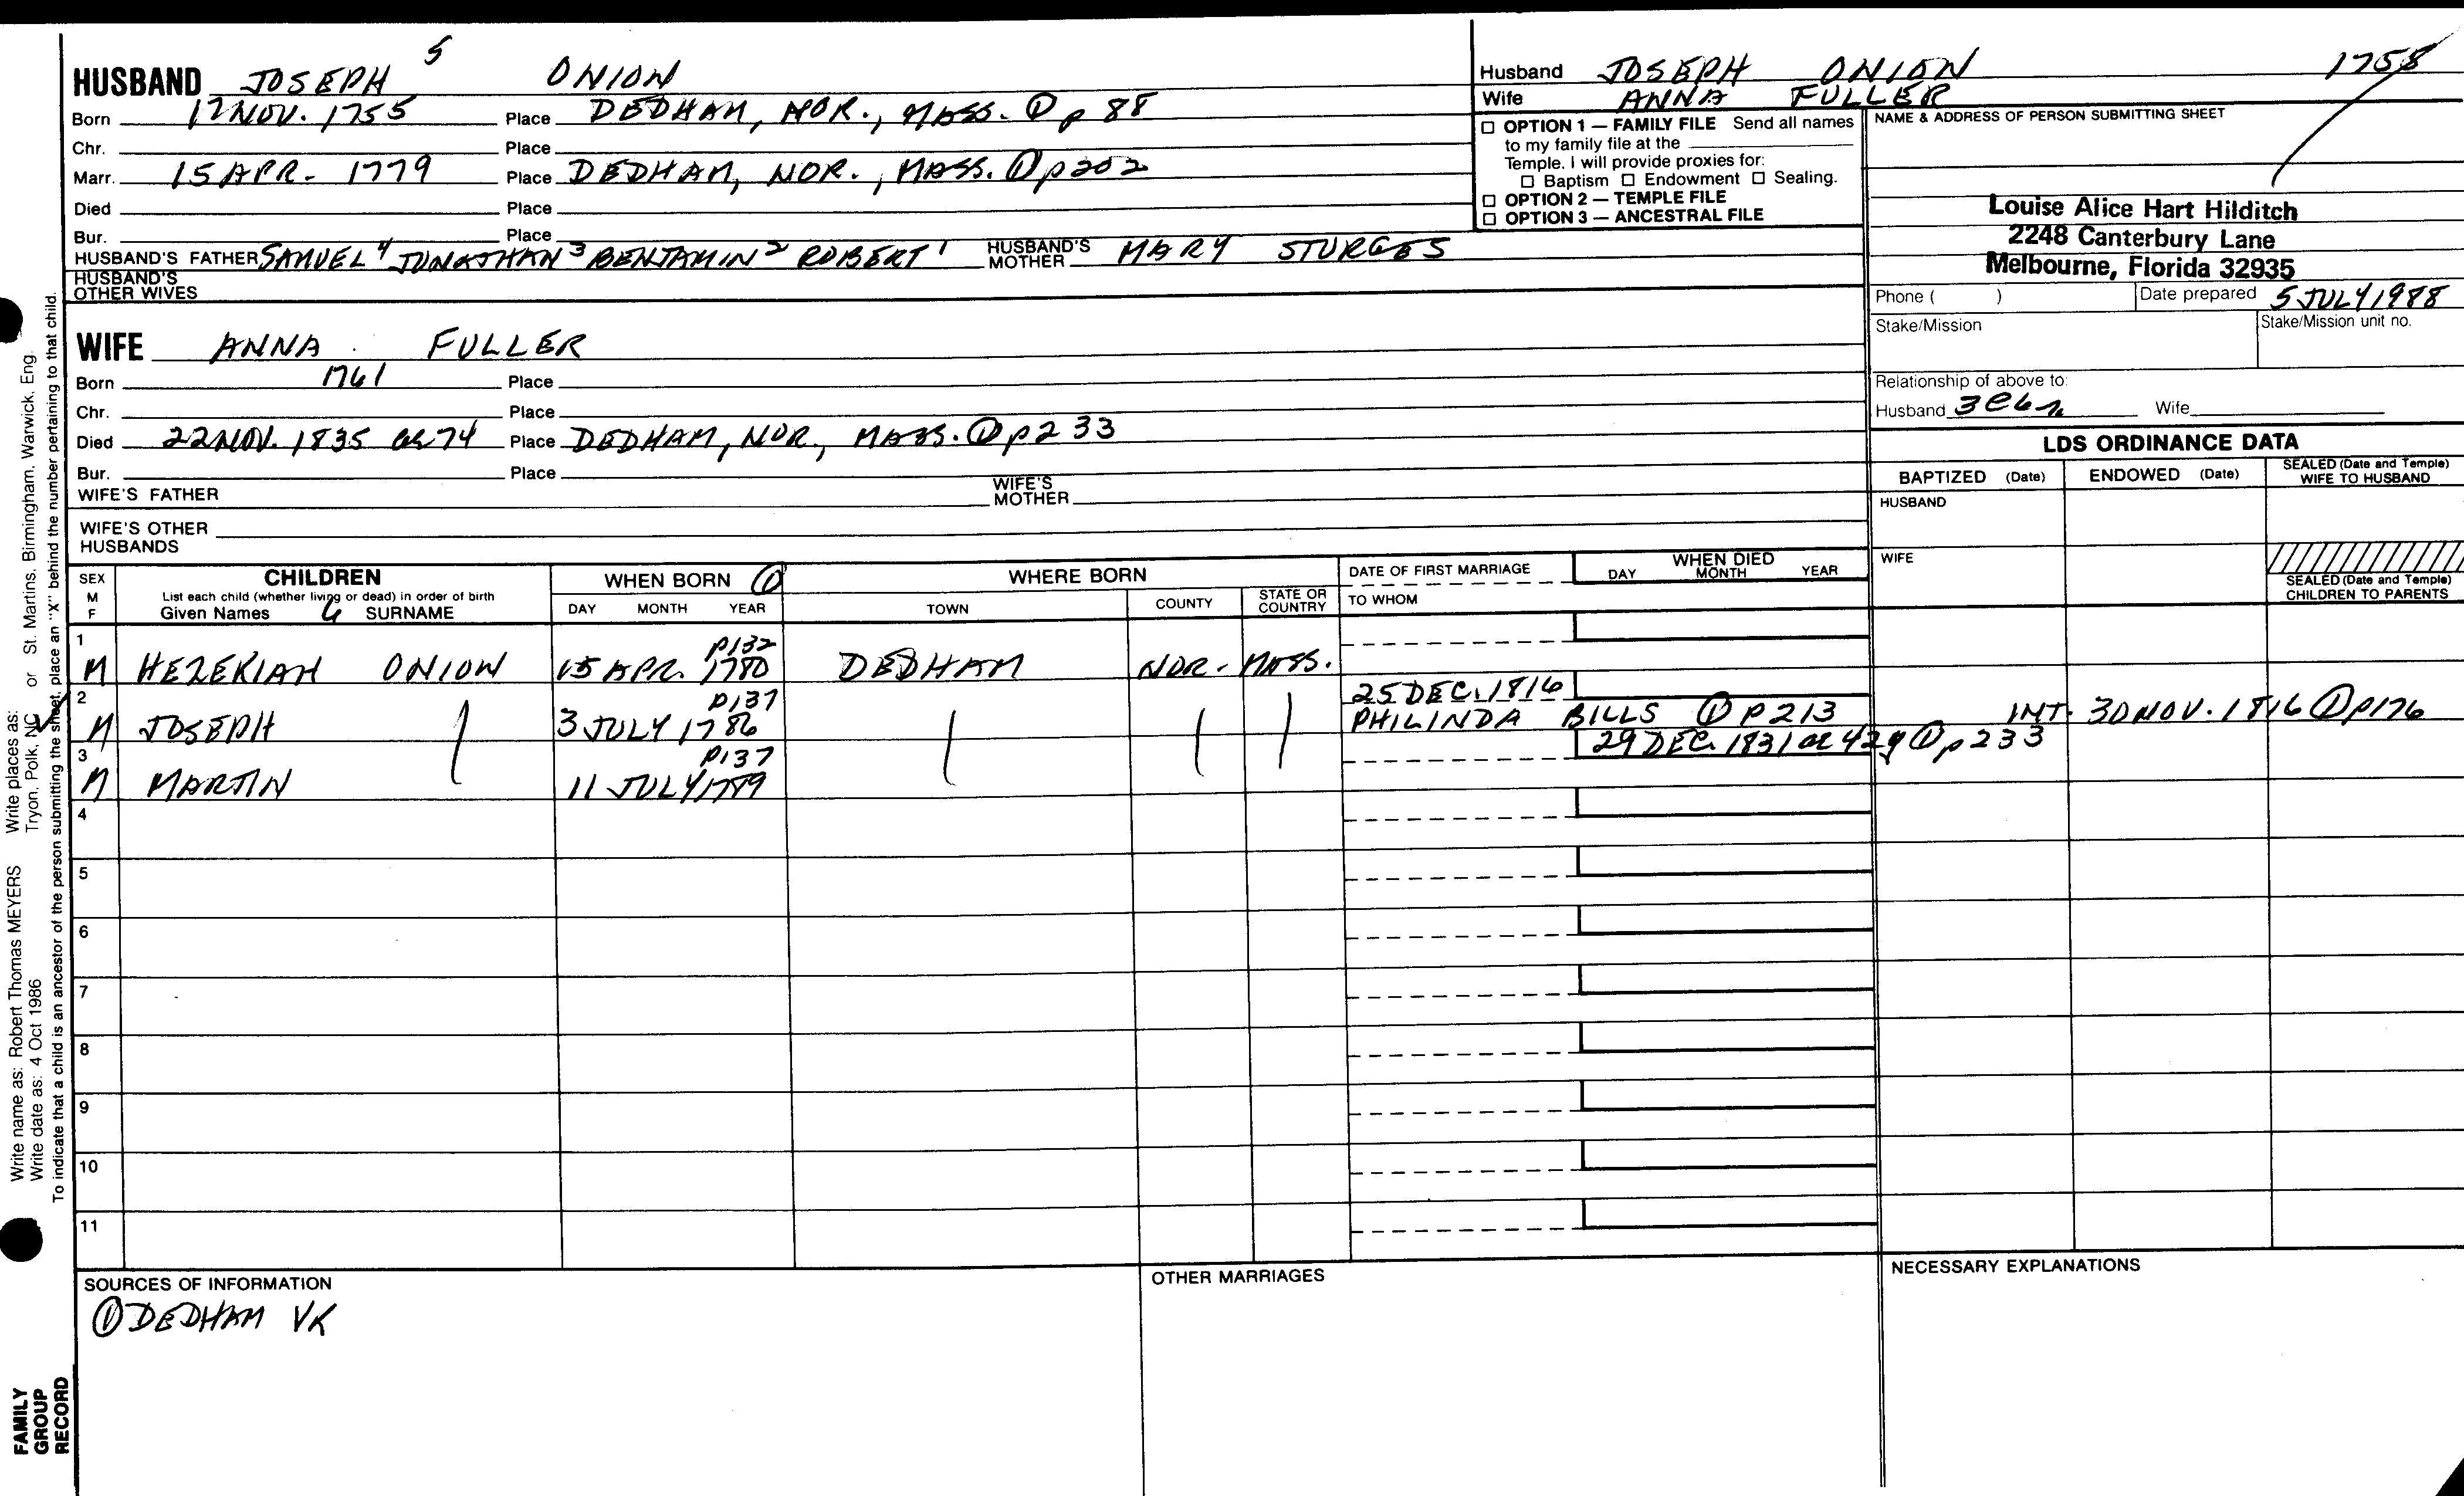 HUSBAND JOSEPH 5 ONION
Born 12 NOV. 1755 Place DEDHAM, NOR., MASS. ① p 88
Chr. Place
Marr. 15 APR. 1779 Place DEDHAM, NOR., MASS. ① p 202
Died Place
Bur. Place
HUSBAND'S FATHER SAMUEL 4 JONATHAN 3 BENJAMIN 2 ROBERT 1 HUSBAND'S MOTHER MARY STURGES
HUSBAND'S OTHER WIVES
Husband JOSEPH ONION 1755
Wife ANNA FULLER
☐ OPTION 1 — FAMILY FILE Send all names
to my family file at the
Temple. I will provide proxies for:
☐ Baptism ☐ Endowment ☐ Sealing.
☐ OPTION 2 — TEMPLE FILE
☐ OPTION 3 — ANCESTRAL FILE
NAME & ADDRESS OF PERSON SUBMITTING SHEET
Louise Alice Hart Hilditch
2248 Canterbury Lane
Melbourne, Florida 32935
Phone ( ) Date prepared 5 JULY 1988
Stake/Mission Stake/Mission unit no.
Relationship of above to:
Husband Wife
WIFE ANNA FULLER
Born 1761 Place
Chr. Place
Died 22 NOV. 1835 ae 74 Place DEDHAM, NOR., MASS. ① p 233
Bur. Place
WIFE'S FATHER WIFE'S MOTHER
WIFE'S OTHER HUSBANDS
LDS ORDINANCE DATA
BAPTIZED (Date) ENDOWED (Date) SEALED (Date and Temple) WIFE TO HUSBAND
HUSBAND
WIFE
SEALED (Date and Temple) CHILDREN TO PARENTS
SEX M F
CHILDREN
List each child (whether living or dead) in order of birth
Given Names 6 SURNAME
WHEN BORN ①
DAY MONTH YEAR
WHERE BORN
TOWN COUNTY STATE OR COUNTRY
DATE OF FIRST MARRIAGE
TO WHOM
WHEN DIED
DAY MONTH YEAR
1 P132
M HEZEKIAH ONION 15 APR. 1780 DEDHAM NOR. MASS.
2 P137 25 DEC. 1816
M JOSEPH 3 JULY 1786 PHILINDA BILLS ① P213 INT. 30 NOV. 1816 ① P176
3 P137 29 DEC. 1831 ae 42y ① p 233
M MARTIN 11 JULY 1789
4
5
6
7
8
9
10
11
SOURCES OF INFORMATION
① DEDHAM VR
OTHER MARRIAGES
NECESSARY EXPLANATIONS
Write name as: Robert Thomas MEYERS Write places as: or St. Martins, Birmingham, Warwick, Eng.
Write date as: 4 Oct 1986 Tryon, Polk, NC
To indicate that a child is an ancestor of the person submitting the sheet, place an "X" behind the number pertaining to that child.
FAMILY
GROUP
RECORD